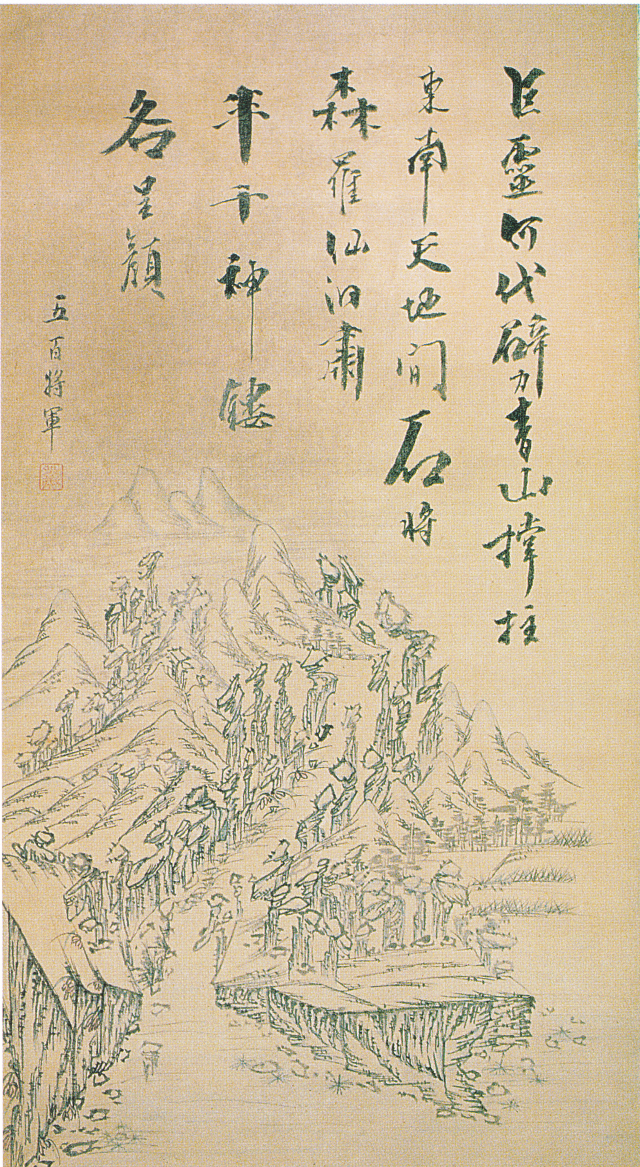 巨靈何代劈青山撑拄
東南天地間石將
森羅仙洞肅
半千神鏤
各呈顔
五百將軍